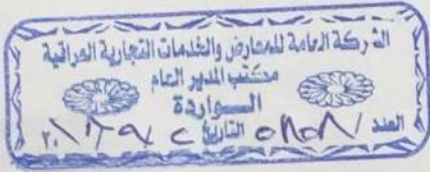 الشركة العامة للمعارض والخدمات التجارية العراقية
مكتب المدير العام
الواردة
العدد التاريخ